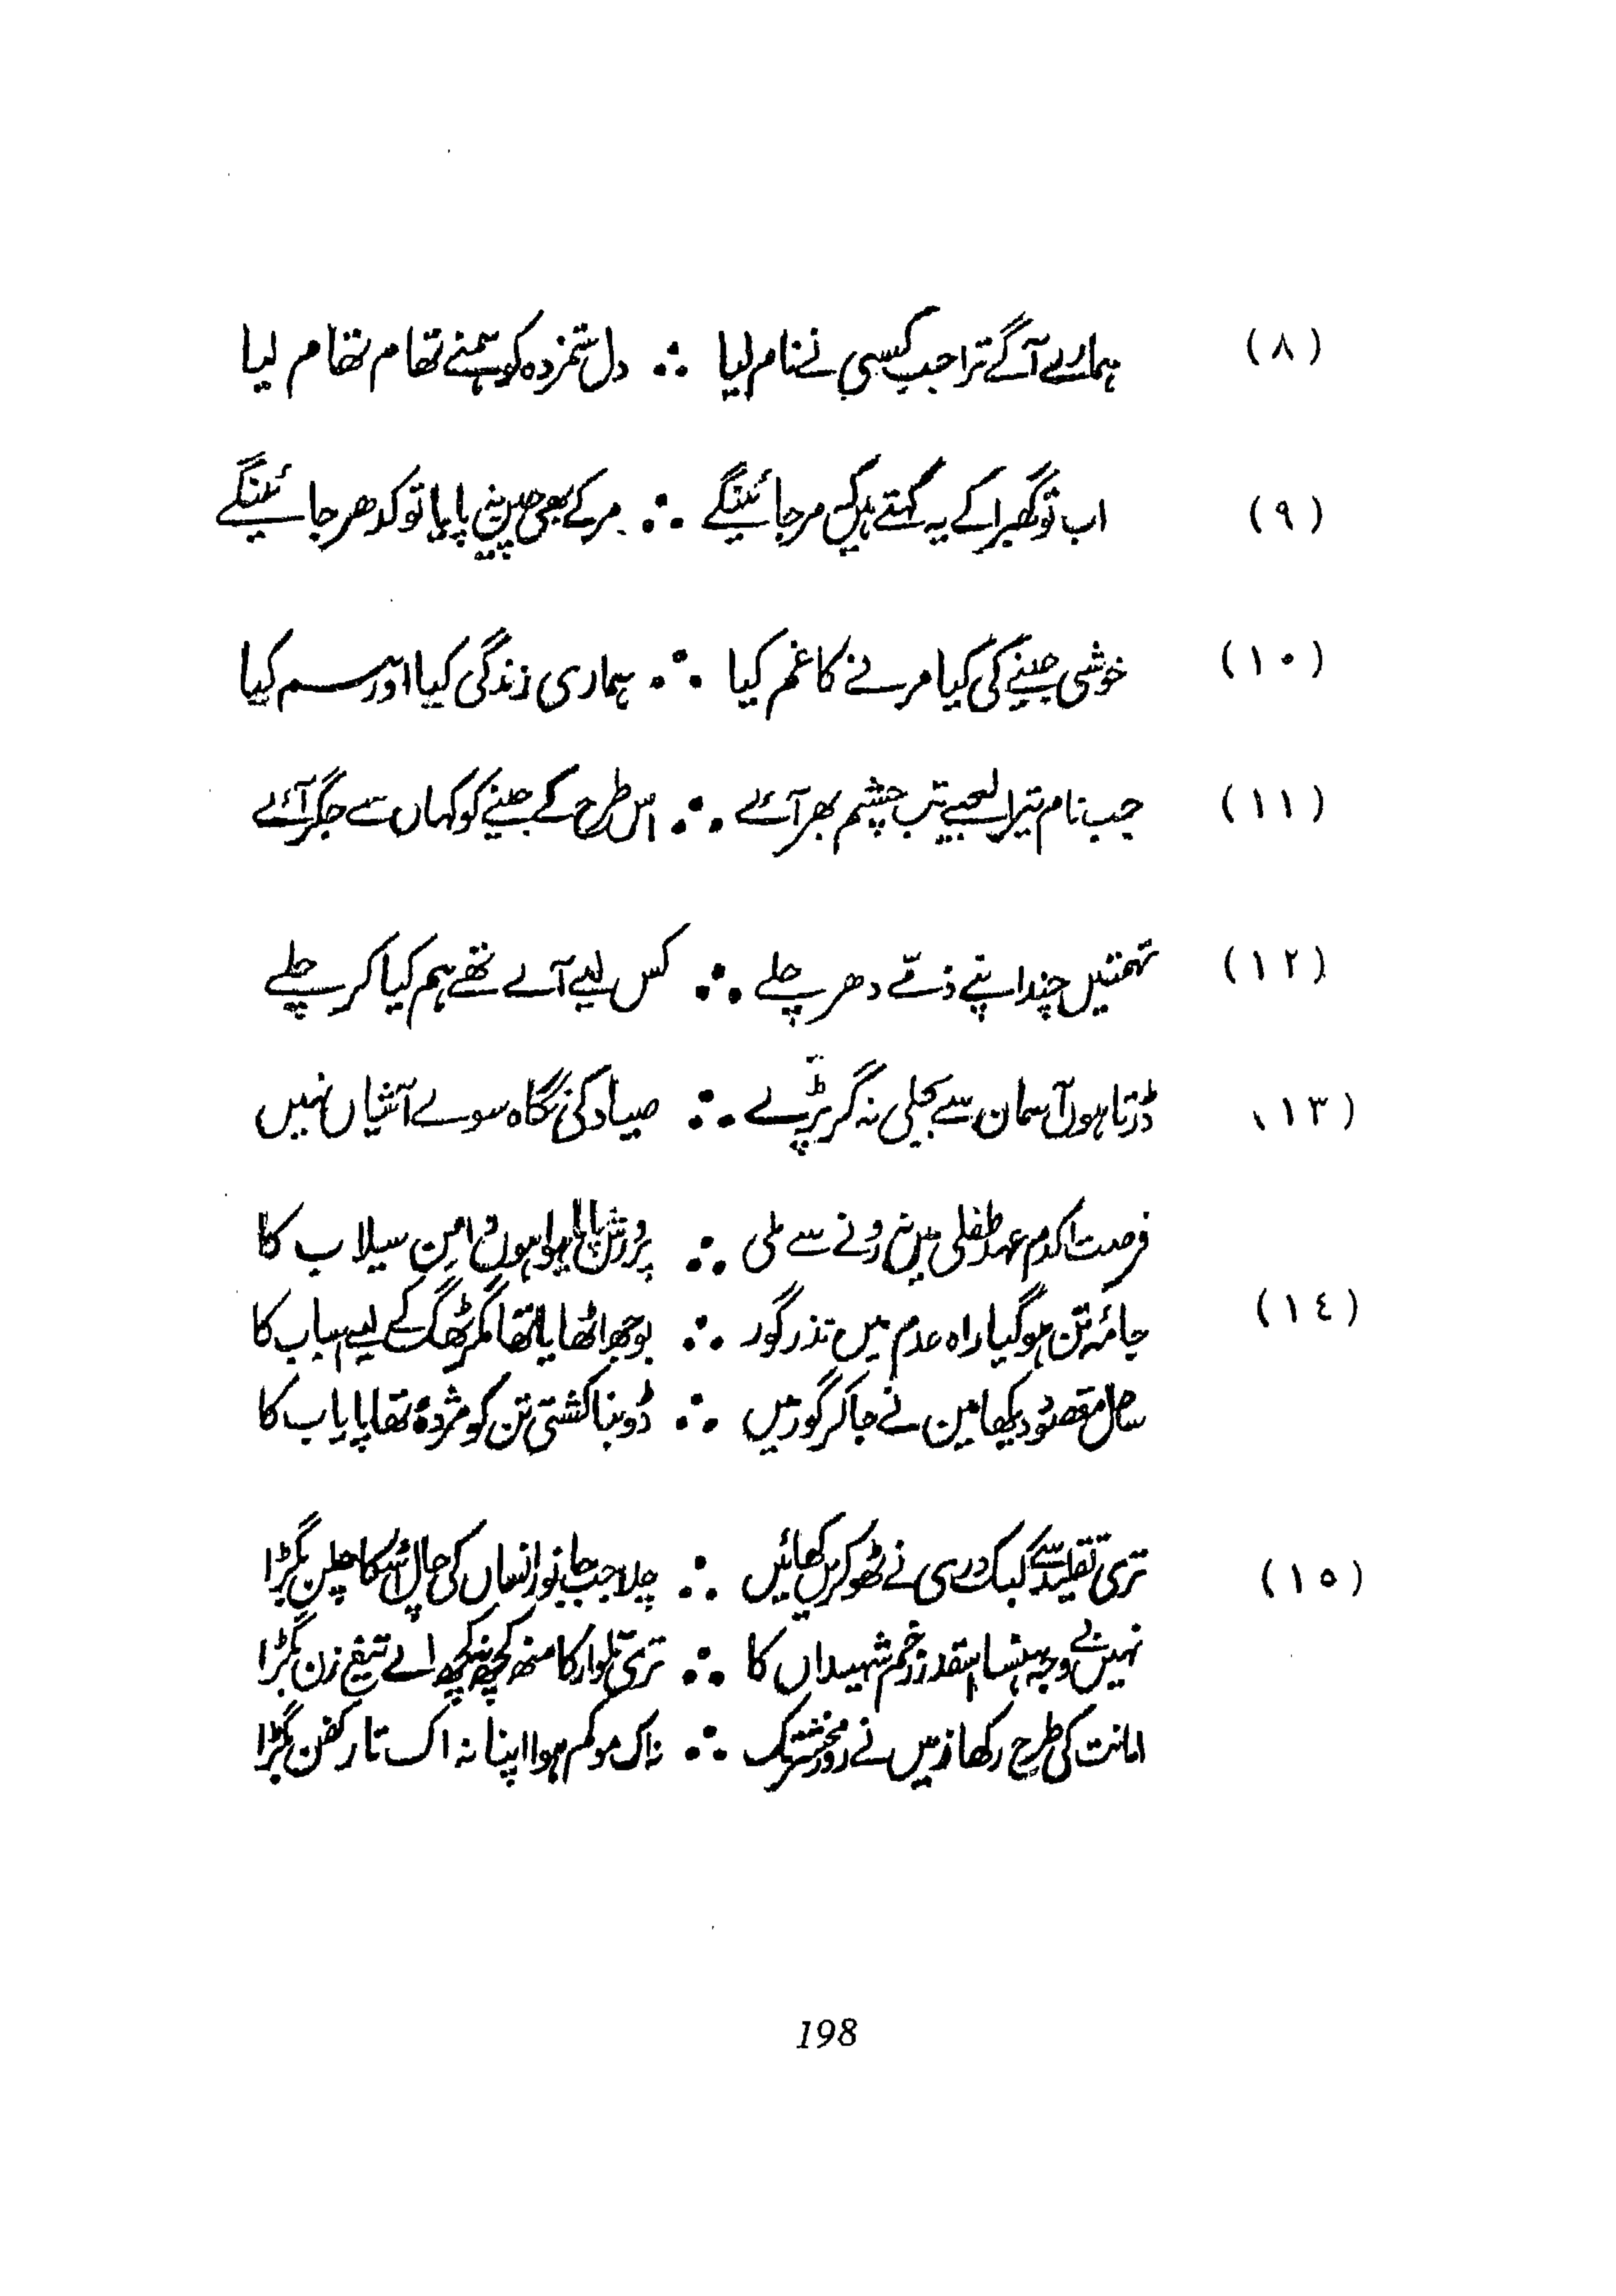 (٨) ہمارے آگے ترا جب کسی نے نام لیا ∴ دل ستمزدہ کو ہمنے تھام تھام لیا
(٩) اب تو گھبرا کے یہ کہتے ہیں کہ مر جائینگے ∴ مر کے بھی چین نہ پایا تو کدھر جائینگے
(١٠) خوشی جینے کی کیا مرنے کا غم کیا ∴ ہماری زندگی کیا اور ہم کیا
(١١) جب نام تیرا لیجیے تب چشم بھر آئے ∴ اس طرح کے جینے کو کہاں سے جگر آئے
(١٢) تہمتیں چند اپنے ذمّے دھر چلے ∴ کس لیے آے تھے ہم کیا کر چلے
(١٣) ڈرتا ہوں آسمان سے بجلی نہ گر پڑے ∴ صیاد کی نگاہ سوے آشیاں نہیں
فرصت اکدم عہد طفلی میں نہ رونے سے ملی ∴ پرورش پایا ہوا ہوں دامن سیلاب کا
(١٤) جامۂ تن ہو گیا راہ عدم میں نذر گور ∴ بوجھ اٹھایا تھا مگر ٹھگ کے لیے اسباب کا
ساحل مقصود دیکھا مین نے جا کر گور میں ∴ ڈوبنا کشتی تن کو مژدہ تھا پایاب کا
(١٥) تری تقلید سے کبک دری نے ٹھوکریں کھائیں ∴ چلا جب جانور انساں کی چال اسکا چلن بگڑا
نہیں بے وجہ ہنسا اسقدر زخم شہیداں کا ∴ تری تلوار کا منھ کچھ نہ کچھ اے تیغ زن بگڑا
امانت کی طرح رکھا زمیں نے روز محشر تک ∴ نہ اک مو کم ہوا اپنا نہ اک تار کفن بگڑا
198